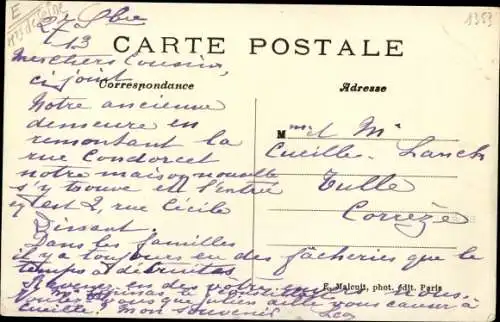 E
Hts de Seine
1359
27 9bre
13
CARTE POSTALE
Mes chers Cousins,
ci joint
Correspondance
Adresse
Notre ancienne
demeure en
remontant la
rue Condorcet
notre maison nouvelle
s'y trouve en l'entrée
y est 2, rue Cécile
Dinsant.
Mme & Mr
Cueille. Lanch
Tulle
Corrèze
Dans les familles
il y a toujours eu des fâcheries que le
temps a détruites
E. Malcuit, phot. édit. Paris
en des votre envers nous.
vous que julien aille vous causer à
Cueille. Mon souvenir